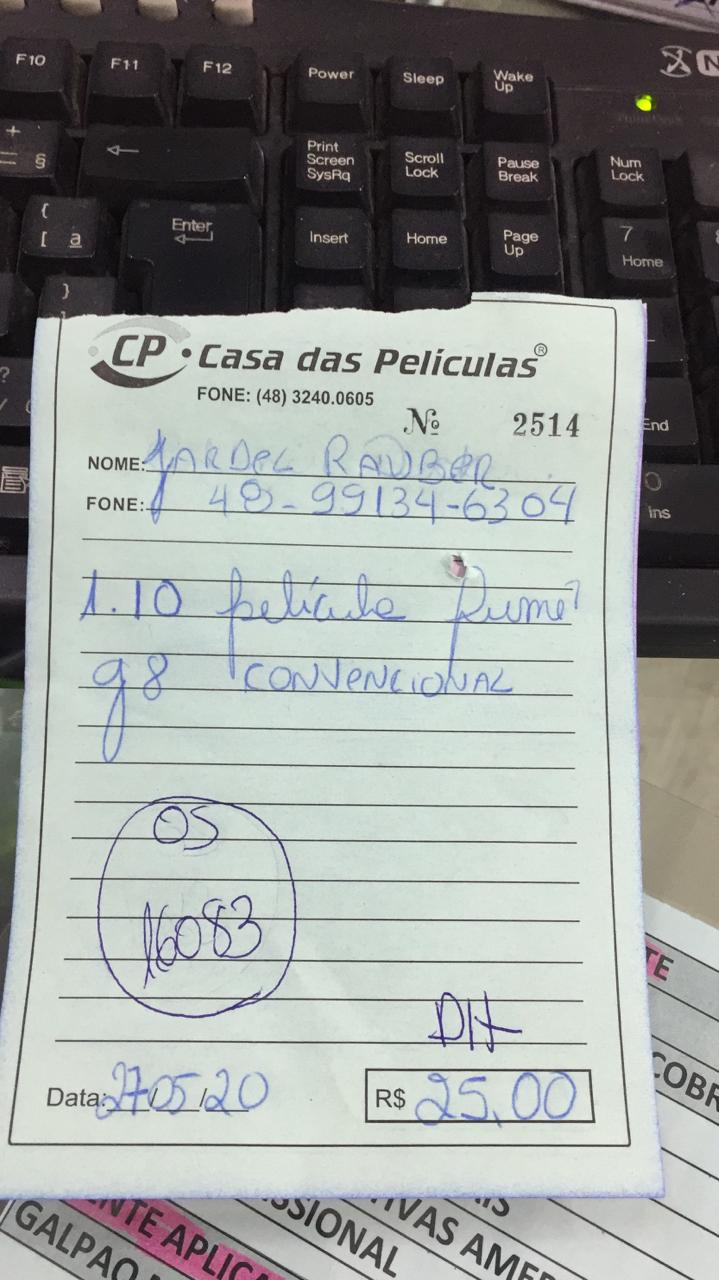 F10 F11 F12 Power Sleep Wake Up
+ = § ← Print Screen SysRq Scroll Lock Pause Break Num Lock
{ [ ª Enter Insert Home Page Up 7 Home
}
End
0 Ins
CP · Casa das Películas®
FONE: (48) 3240.0605
Nº 2514
NOME: JARDEL RAUBER
FONE: 48-99134-6304
1.10 película fumê
g8 CONVENCIONAL
OS
16083
DH
Data: 27/05/20 R$ 25,00
TE
COBR
AIS
IVAS AMER
SSIONAL
ENTE APLICA
GALPAO